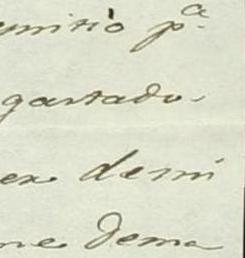 umitio pª.
gastado.
er demi
me dema